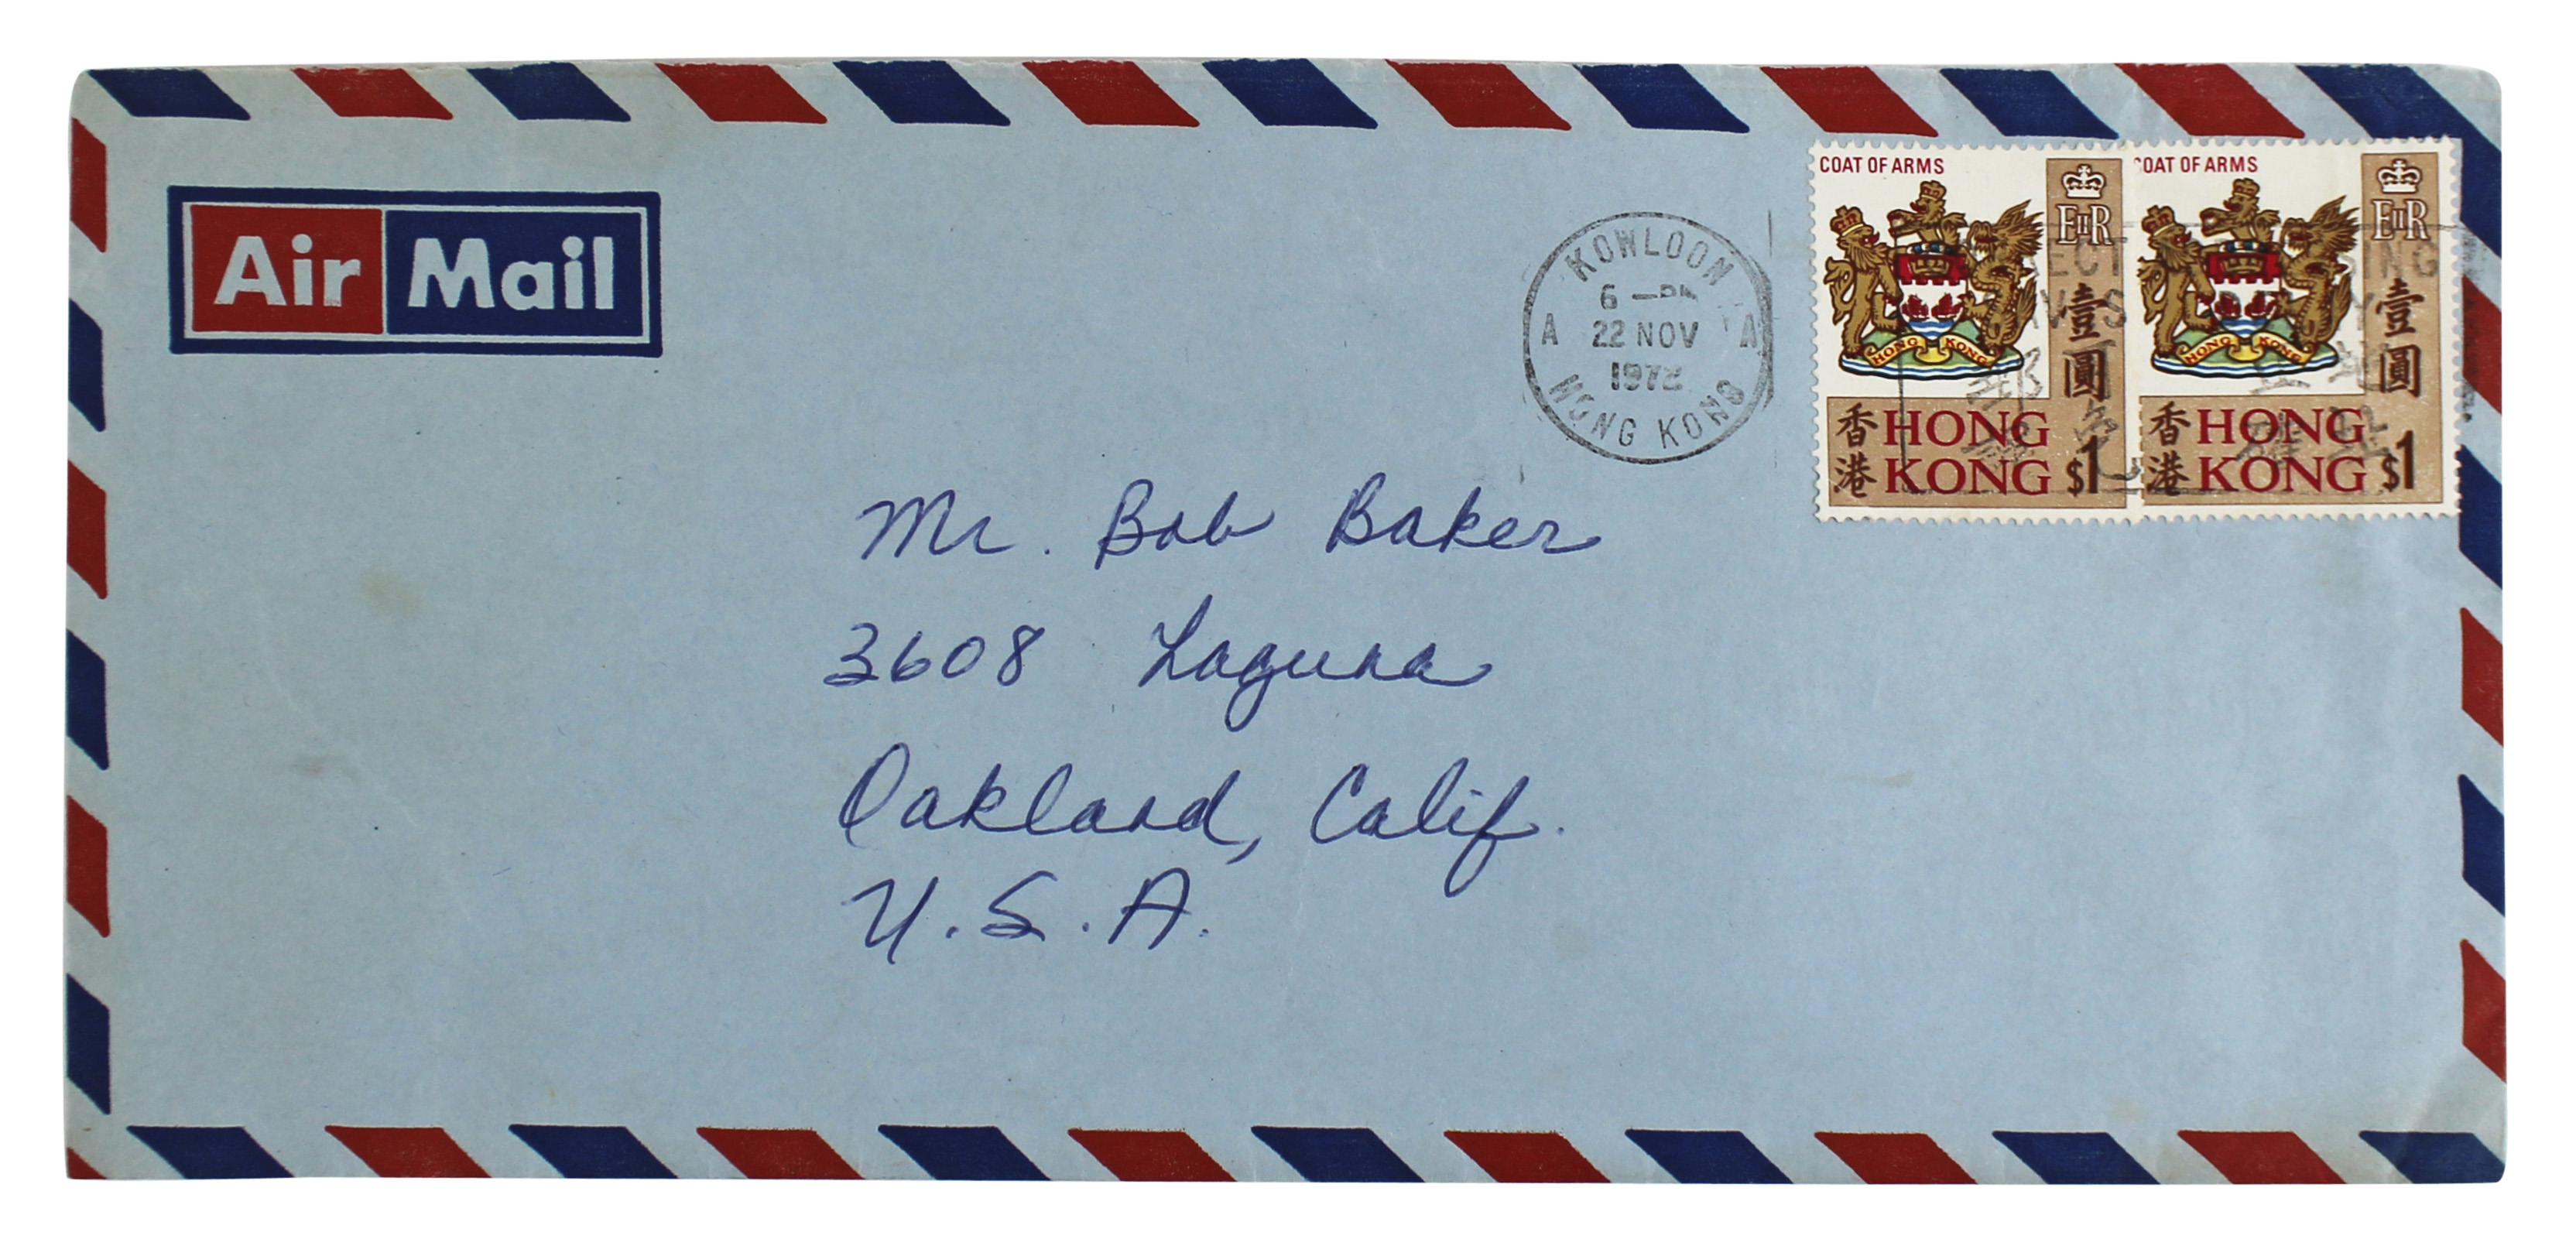 Air Mail
KOWLOON
6 — PM
A 22 NOV A
HONG KONG
COAT OF ARMS
EIIR
壹圓
HONG KONG
香港
HONG
KONG $1
COAT OF ARMS
EIIR
壹圓
HONG KONG
香港
HONG
KONG $1
Mr. Bob Baker
3608 Laguna
Oakland, Calif.
U.S.A.